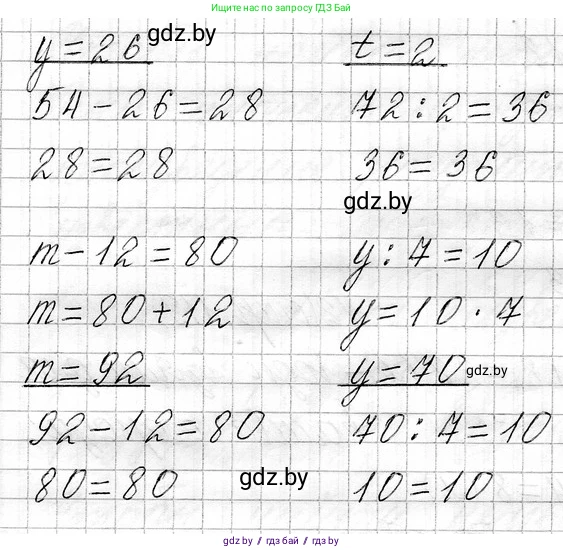 Ищите нас в поиске по запросу ГДЗ Бай
y = 26
gdz.by
54 - 26 = 28
28 = 28
t = 2
72 : 2 = 36
36 = 36
gdz.by
m - 12 = 80
m = 80 + 12
m = 92
92 - 12 = 80
80 = 80
gdz.by
y : 7 = 10
y = 10 · 7
y = 70
gdz.by
70 : 7 = 10
10 = 10
gdz.by / гдз бай / gdz by